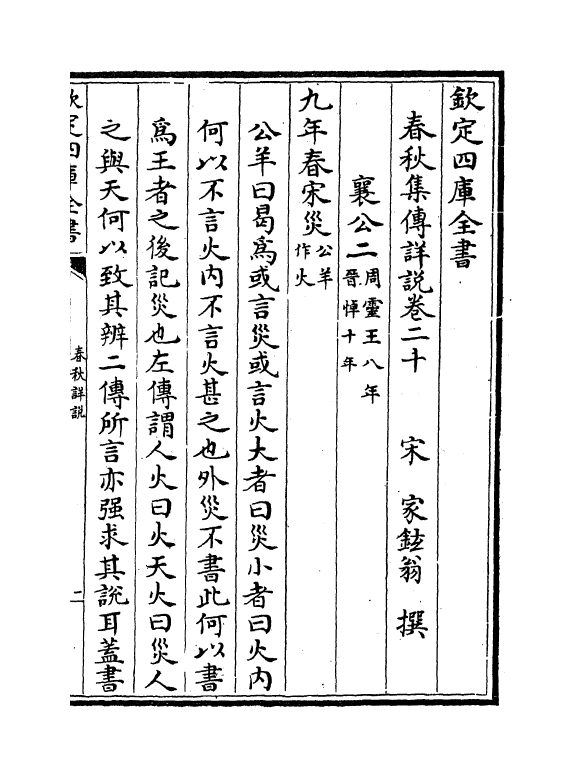 欽定四庫全書
春秋集傳詳說卷二十　宋　家鉉翁　撰
襄公二周靈王八年晉悼十年
九年春宋災公羊作火
公羊曰曷爲或言災或言火大者曰災小者曰火內
何以不言火內不言火甚之也外災不書此何以書
爲王者之後記災也左傳謂人火曰火天火曰災人
之與天何以致其辨二傳所言亦强求其說耳蓋書
欽定四庫全書
春秋詳說
二